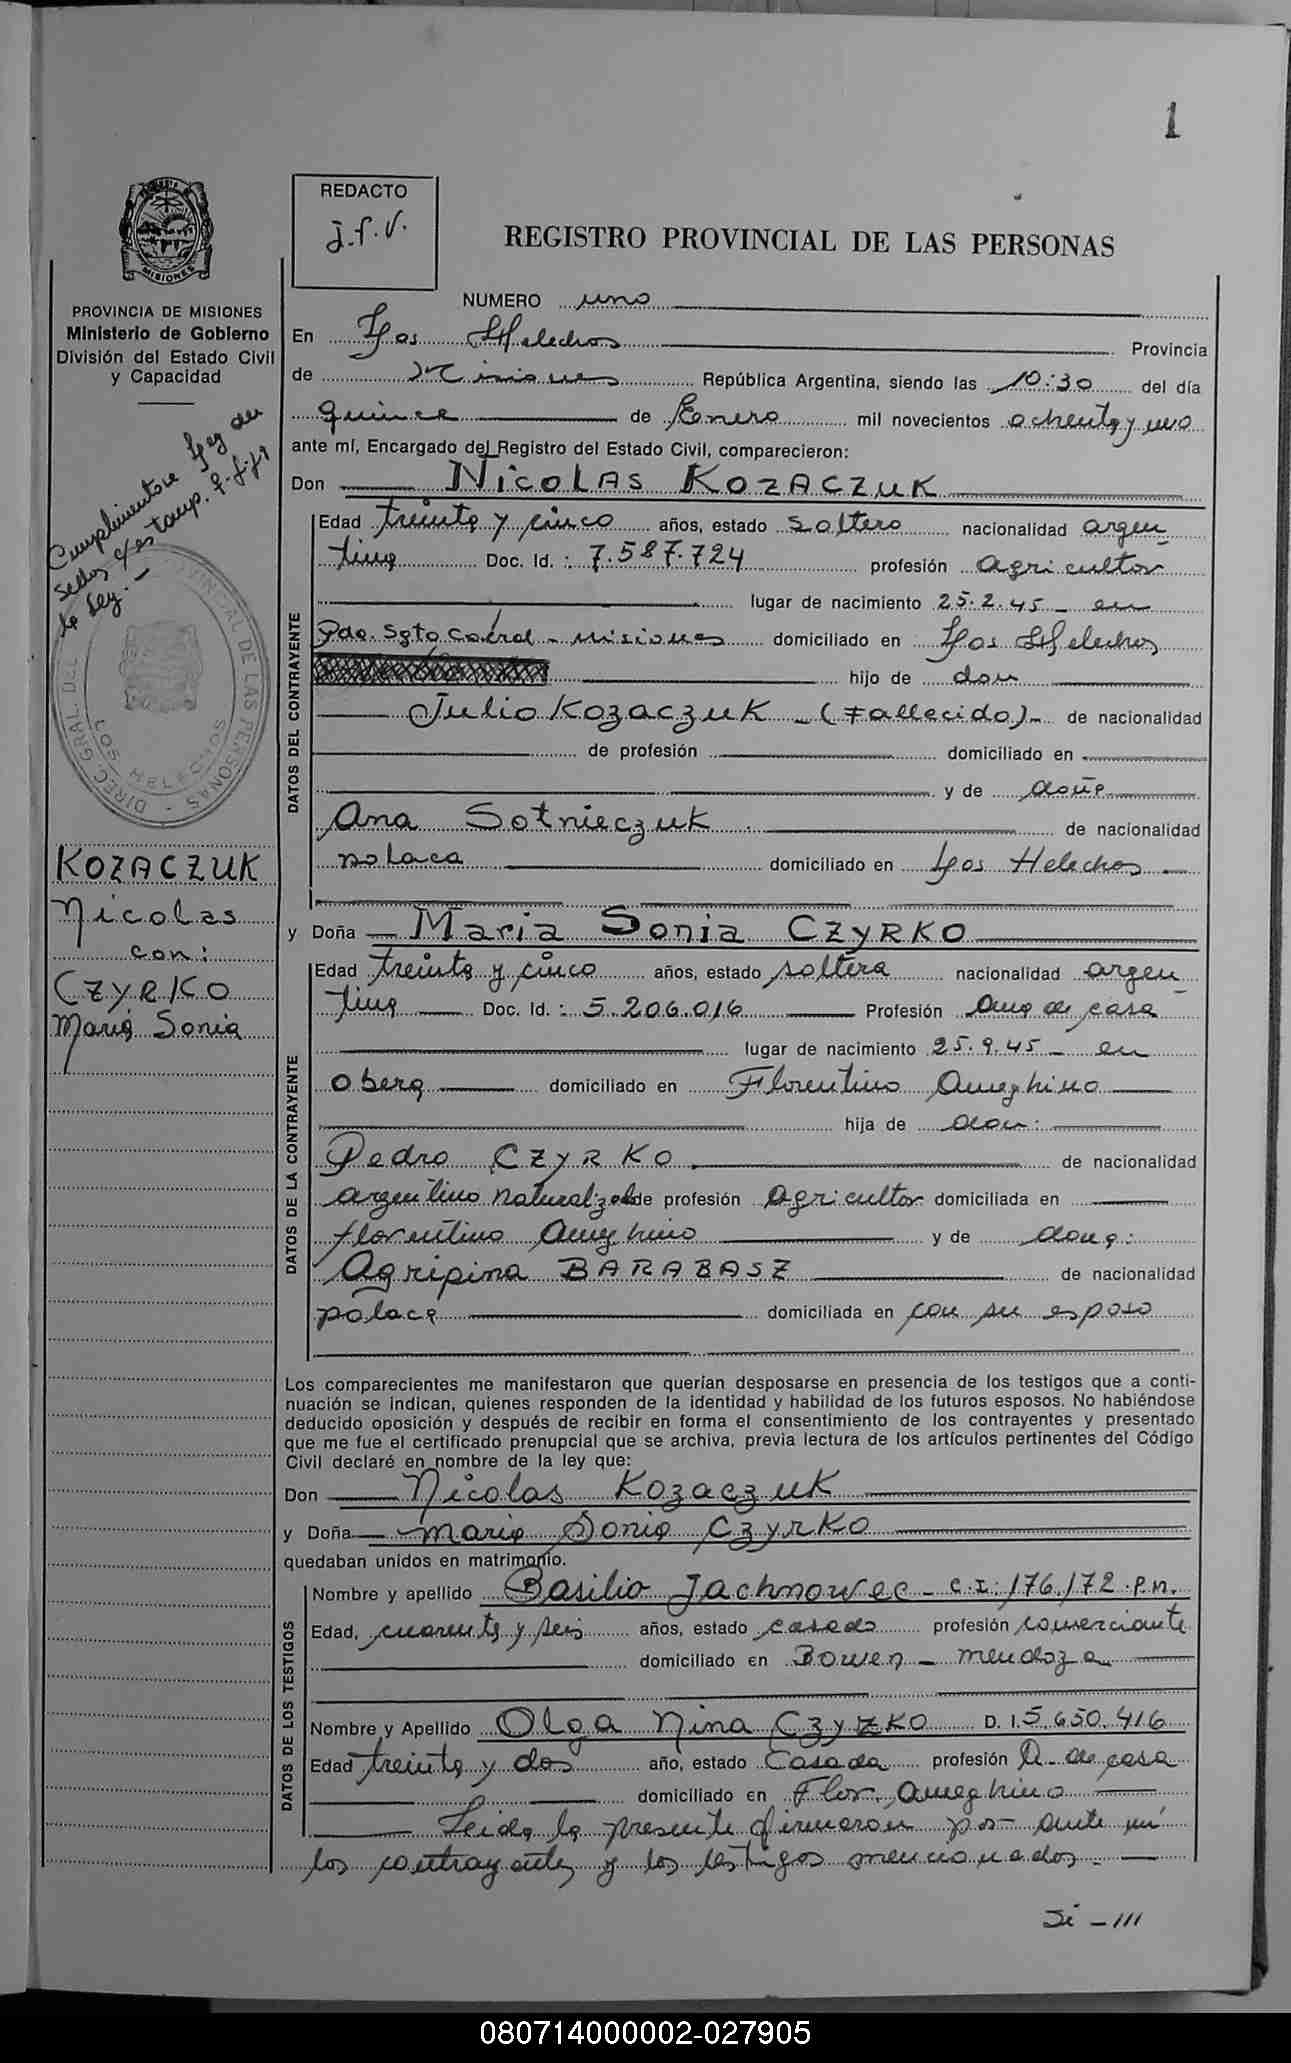 1
REDACTO
J.F.V.
REGISTRO PROVINCIAL DE LAS PERSONAS
MISIONES
PROVINCIA DE MISIONES
Ministerio de Gobierno
División del Estado Civil
y Capacidad
Cumplimentose Ley de
sellos
la Ley.-
DIREC. GRAL. DEL PROVINCIAL DE LAS PERSONAS -
LOS HELECHOS
KOZACZUK
Nicolas
con:
CZYRKO
Maria Sonia
NUMERO uno
En Los Helechos Provincia
de Misiones República Argentina, siendo las 10:30 del día
quince de Enero mil novecientos ochenta y uno
ante mí, Encargado del Registro del Estado Civil, comparecieron:
Don NICOLAS KOZACZUK
DATOS DEL CONTRAYENTE
Edad treinta y cinco años, estado soltero nacionalidad argen
tina Doc. Id.: 7.587.724 profesión Agricultor
lugar de nacimiento 25.2.45 - en
Pdo. Sgto Cabral - Misiones domiciliado en Los Helechos
hijo de don
Julio KOZACZUK - (Fallecido)- de nacionalidad
de profesión domiciliado en
y de doña
Ana Sotnieczuk de nacionalidad
polaca domiciliado en Los Helechos
y Doña Maria Sonia CZYRKO
DATOS DE LA CONTRAYENTE
Edad treinta y cinco años, estado soltera nacionalidad argen
tina Doc. Id.: 5.206.016 Profesión Ama de casa
lugar de nacimiento 25.9.45 - en
Obera domiciliado en Florentino Ameghino
hija de don:
Pedro CZYRKO de nacionalidad
argentino naturalizado de profesión Agricultor domiciliada en
florentino Ameghino y de doña:
Agripina BARABASZ de nacionalidad
polaca domiciliada en con su esposo
Los comparecientes me manifestaron que querían desposarse en presencia de los testigos que a conti-
nuación se indican, quienes responden de la identidad y habilidad de los futuros esposos. No habiéndose
deducido oposición y después de recibir en forma el consentimiento de los contrayentes y presentado
que me fue el certificado prenupcial que se archiva, previa lectura de los artículos pertinentes del Código
Civil declaré en nombre de la ley que:
Don Nicolas KOZACZUK
y Doña Maria Sonia CZYRKO
quedaban unidos en matrimonio.
DATOS DE LOS TESTIGOS
Nombre y apellido Basilio Jachnowec - C.I: 176.172 P.M.
Edad, cuarenta y seis años, estado casado profesión comerciante
domiciliado en Bowen - Mendoza
Nombre y Apellido Olga Nina CZYRKO D. I. 5.650.416
Edad treinta y dos año, estado Casada profesión A. de casa
domiciliado en Flor. Ameghino
Leida la presente firmaron por ante mi
los contrayentes y los testigos mencionados.-
Si - ///
080714000002-027905